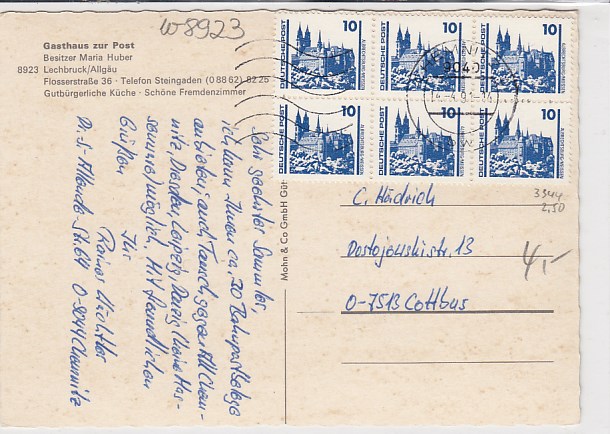 W 8923
Gasthaus zur Post
Besitzer Maria Huber
8923 Lechbruck/Allgäu
Flosserstraße 36 · Telefon Steingaden (0 88 62) 82 25
Gutbürgerliche Küche · Schöne Fremdenzimmer
Sehr geehrter Sammler,
ich kann Ihnen ca. 30 Bahnpostbelege
anbieten, auch Tausch gegen All Chem-
nitz, Dresden, Leipzig,
möglich. Mit freundlichen
Grüßen
Ihr
Dr.-S.-Allende Str. 64 O-9044 Chemnitz
Mohn & Co GmbH Güt
DEUTSCHE POST 10
DEUTSCHE POST 10
DEUTSCHE POST 10
DEUTSCHE POST 10
DEUTSCHE POST 10
DEUTSCHE POST 10
CHEMNITZ
9040
C. Hädrich
3344
2,50
Dostojewskistr. 13
4,-
O-7513 Cottbus